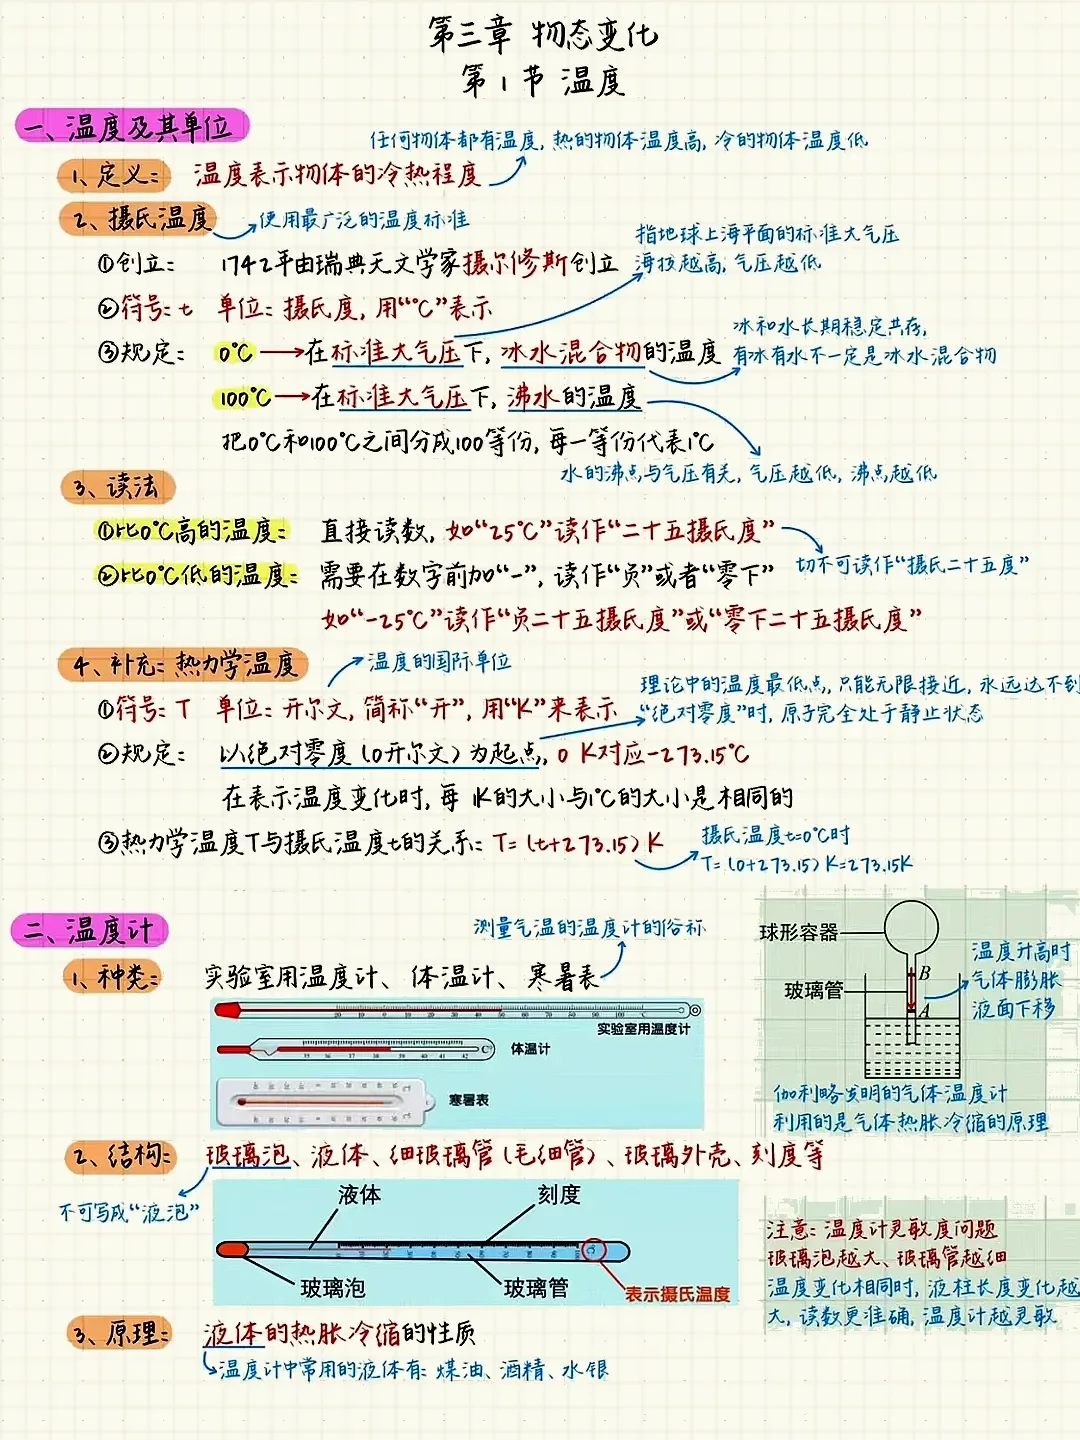 第三章 物态变化
第1节 温度
一、温度及其单位
任何物体都有温度, 热的物体温度高, 冷的物体温度低
1、定义: 温度表示物体的冷热程度
2、摄氏温度
使用最广泛的温度标准
指地球上海平面的标准大气压
海拔越高, 气压越低
①创立: 1742年由瑞典天文学家摄尔修斯创立
②符号: t 单位: 摄氏度, 用“℃”表示
③规定: 0℃→在标准大气压下, 冰水混合物的温度
冰和水长期稳定共存,
有冰有水不一定是冰水混合物
100℃→在标准大气压下, 沸水的温度
把0℃和100℃之间分成100等份, 每一等份代表1℃
水的沸点与气压有关, 气压越低, 沸点越低
3、读法
①比0℃高的温度: 直接读数, 如“25℃”读作“二十五摄氏度”
切不可读作“摄氏二十五度”
②比0℃低的温度: 需要在数字前加“-”, 读作“负”或者“零下”
如“-25℃”读作“负二十五摄氏度”或“零下二十五摄氏度”
4、补充: 热力学温度
温度的国际单位
①符号: T 单位: 开尔文, 简称“开”, 用“K”来表示
理论中的温度最低点, 只能无限接近, 永远达不到
“绝对零度”时, 原子完全处于静止状态
②规定: 以绝对零度(0开尔文)为起点, 0 K对应-273.15℃
在表示温度变化时, 每1K的大小与1℃的大小是相同的
③热力学温度T与摄氏温度t的关系: T=(t+273.15)K
摄氏温度t=0℃时
T=(0+273.15)K=273.15K
二、温度计
测量气温的温度计的俗称
1、种类: 实验室用温度计、体温计、寒暑表
实验室用温度计
体温计
寒暑表
球形容器
玻璃管
B
A
温度升高时
气体膨胀
液面下移
伽利略发明的气体温度计
利用的是气体热胀冷缩的原理
2、结构: 玻璃泡、液体、细玻璃管(毛细管)、玻璃外壳、刻度等
不可写成“液泡”
液体
刻度
玻璃泡
玻璃管
表示摄氏温度
注意: 温度计灵敏度问题
玻璃泡越大、玻璃管越细
温度变化相同时, 液柱长度变化越
大, 读数更准确, 温度计越灵敏
3、原理: 液体的热胀冷缩的性质
温度计中常用的液体有: 煤油、酒精、水银